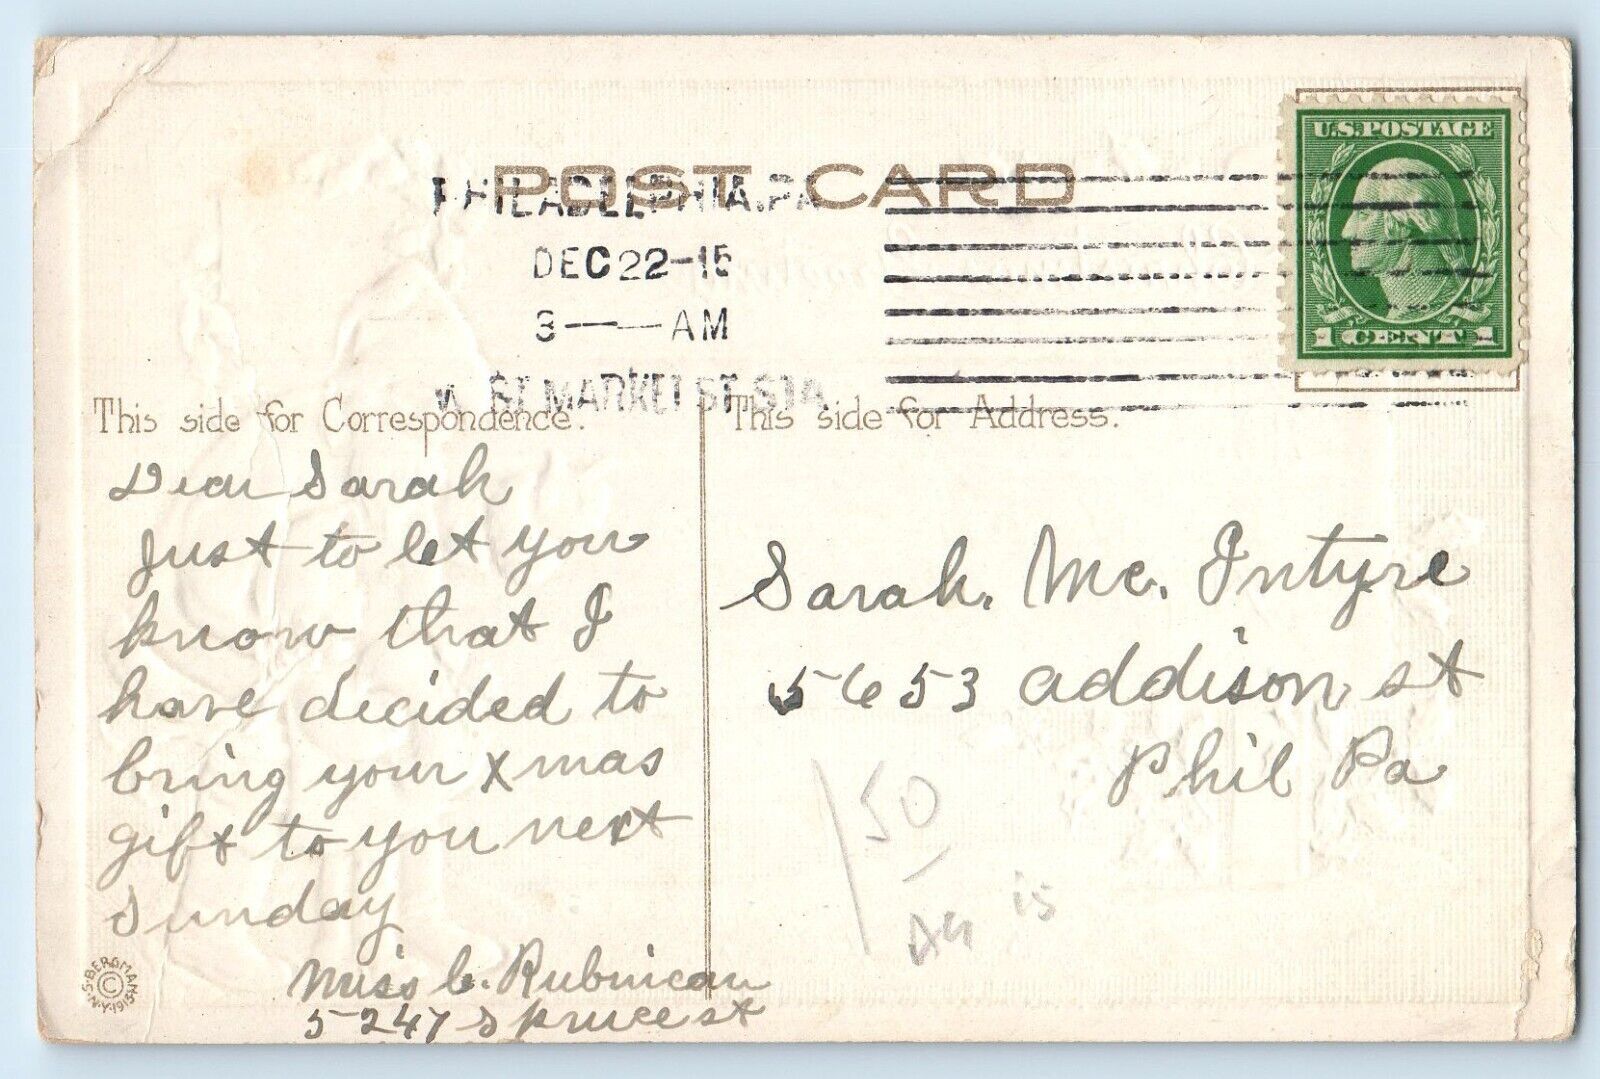 POST CARD
U.S. POSTAGE
1 CENT 1
PHILADELPHIA, PA
DEC 22-15
3 — AM
W. ST. MARKET ST. STA.
This side for Correspondence.
This side for Address.
Dear Sarah
Just to let you
know that I
have decided to
bring your Xmas
gift to you next
Sunday
Miss C. Rubincan
5247 Spruce st
Sarah. Mc. Intyre
5653 addison st
Phil Pa
150
as is
S. BERGMAN N.Y. 1913 ©